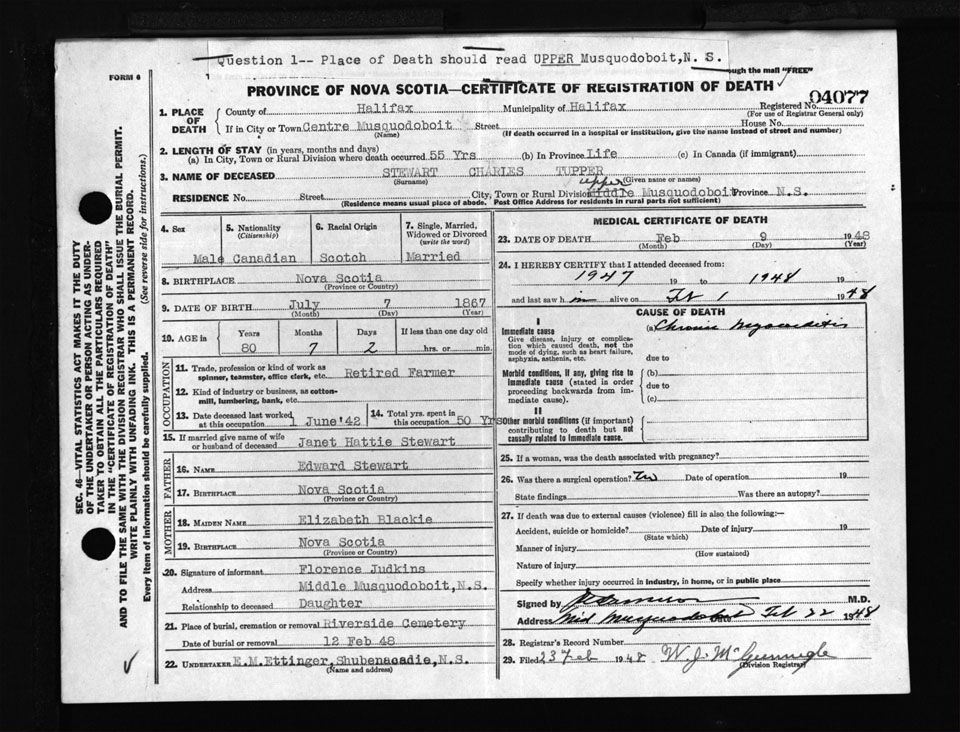 Question 1-- Place of Death should read UPPER Musquodoboit,N. S.
FORM 6
ugh the mail "FREE"
PROVINCE OF NOVA SCOTIA—CERTIFICATE OF REGISTRATION OF DEATH
04077
1. PLACE OF DEATH
County of Halifax Municipality of Halifax Registered No.
(For use of Registrar General only)
If in City or Town Centre Musquodoboit Street House No.
(Name) (If death occurred in a hospital or institution, give the name instead of street and number)
2. LENGTH OF STAY (in years, months and days)
(a) In City, Town or Rural Division where death occurred 55 Yrs (b) In Province Life (c) In Canada (if immigrant)
3. NAME OF DECEASED STEWART CHARLES TUPPER
(Surname) (Given name or names)
upper
RESIDENCE No. Street City, Town or Rural Division Middle Musquodoboit Province N.S.
(Residence means usual place of abode. Post Office Address for residents in rural parts not sufficient)
4. Sex
Male
5. Nationality
(Citizenship)
Canadian
6. Racial Origin
Scotch
7. Single, Married, Widowed or Divorced
(write the word)
Married
8. BIRTHPLACE Nova Scotia
(Province or Country)
9. DATE OF BIRTH July 7 1867
(Month) (Day) (Year)
10. AGE in
Years Months Days If less than one day old
80 7 2 hrs. or min.
OCCUPATION
11. Trade, profession or kind of work as
spinner, teamster, office clerk, etc. Retired Farmer
12. Kind of industry or business, as cotton-
mill, lumbering, bank, etc.
13. Date deceased last worked
at this occupation 1 June '42
14. Total yrs. spent in
this occupation 50 Yrs
15. If married give name of wife
or husband of deceased Janet Hattie Stewart
FATHER
16. NAME Edward Stewart
17. BIRTHPLACE Nova Scotia
(Province or Country)
MOTHER
18. MAIDEN NAME Elizabeth Blackie
19. BIRTHPLACE Nova Scotia
(Province or Country)
20. Signature of informant Florence Judkins
Address Middle Musquodoboit,N.S.
Relationship to deceased Daughter
21. Place of burial, cremation or removal Riverside Cemetery
Date of burial or removal 12 Feb 48
22. UNDERTAKER E.M.Ettinger, Shubenacadie,N.S.
(Name and address)
MEDICAL CERTIFICATE OF DEATH
23. DATE OF DEATH Feb 9 1948
(Month) (Day) (Year)
24. I HEREBY CERTIFY that I attended deceased from:
1947 19 to 1948 19
and last saw him alive on Feb 1 1948
CAUSE OF DEATH
I
Immediate cause
Give disease, injury or complica-
tion which caused death, not the
mode of dying, such as heart failure,
asphyxia, asthenia, etc.
(a) Chronic Myocarditis
due to
Morbid conditions, if any, giving rise to
immediate cause (stated in order
proceeding backwards from im-
mediate cause).
(b)
due to
(c)
II
Other morbid conditions (if important)
contributing to death but not
causally related to immediate cause.
25. If a woman, was the death associated with pregnancy?
26. Was there a surgical operation? Date of operation 19
State findings Was there an autopsy?
27. If death was due to external causes (violence) fill in also the following:—
Accident, suicide or homicide? Date of injury 19
(State which)
Manner of injury
(How sustained)
Nature of injury
Specify whether injury occurred in industry, in home, or in public place
Signed by M.D.
Address Mid Musquodoboit Date Feb 22 1948
28. Registrar's Record Number
29. Filed 23 Feb 1948 W. J. McGunnigle
(Division Registrar)
SEC. 46—VITAL STATISTICS ACT MAKES IT THE DUTY
OF THE UNDERTAKER OR PERSON ACTING AS UNDER-
TAKER TO OBTAIN ALL THE PARTICULARS REQUIRED
IN THE "CERTIFICATE OF REGISTRATION OF DEATH"
AND TO FILE THE SAME WITH THE DIVISION REGISTRAR WHO SHALL ISSUE THE BURIAL PERMIT.
WRITE PLAINLY WITH UNFADING INK. THIS IS A PERMANENT RECORD.
Every item of information should be carefully supplied. (See reverse side for instructions.)